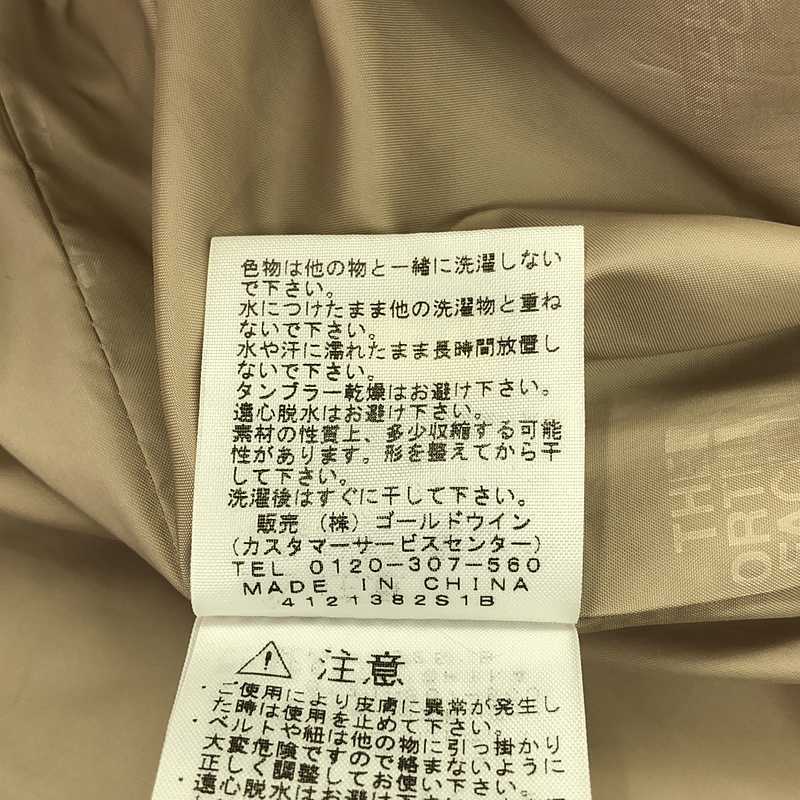 色物は他の物と一緒に洗濯しない
で下さい。
水につけたまま他の洗濯物と重ね
ないで下さい。
水や汗に濡れたまま長時間放置し
ないで下さい。
タンブラー乾燥はお避け下さい。
遠心脱水はお避け下さい。
素材の性質上、多少収縮する可能
性があります。形を整えてから干
して下さい。
洗濯後はすぐに干して下さい。
販売 (株)ゴールドウイン
(カスタマーサービスセンター)
TEL 0120-307-560
MADE IN CHINA
4121382S1B
注意
・ご使用により皮膚に異常が発生し
た時は使用を止めて下さい。
・ベルトや紐は他の物に引っ掛かり
大変危険ですので絡まないように
正しく調整してお使い下さい。
・遠心脱水はお避け下さい。